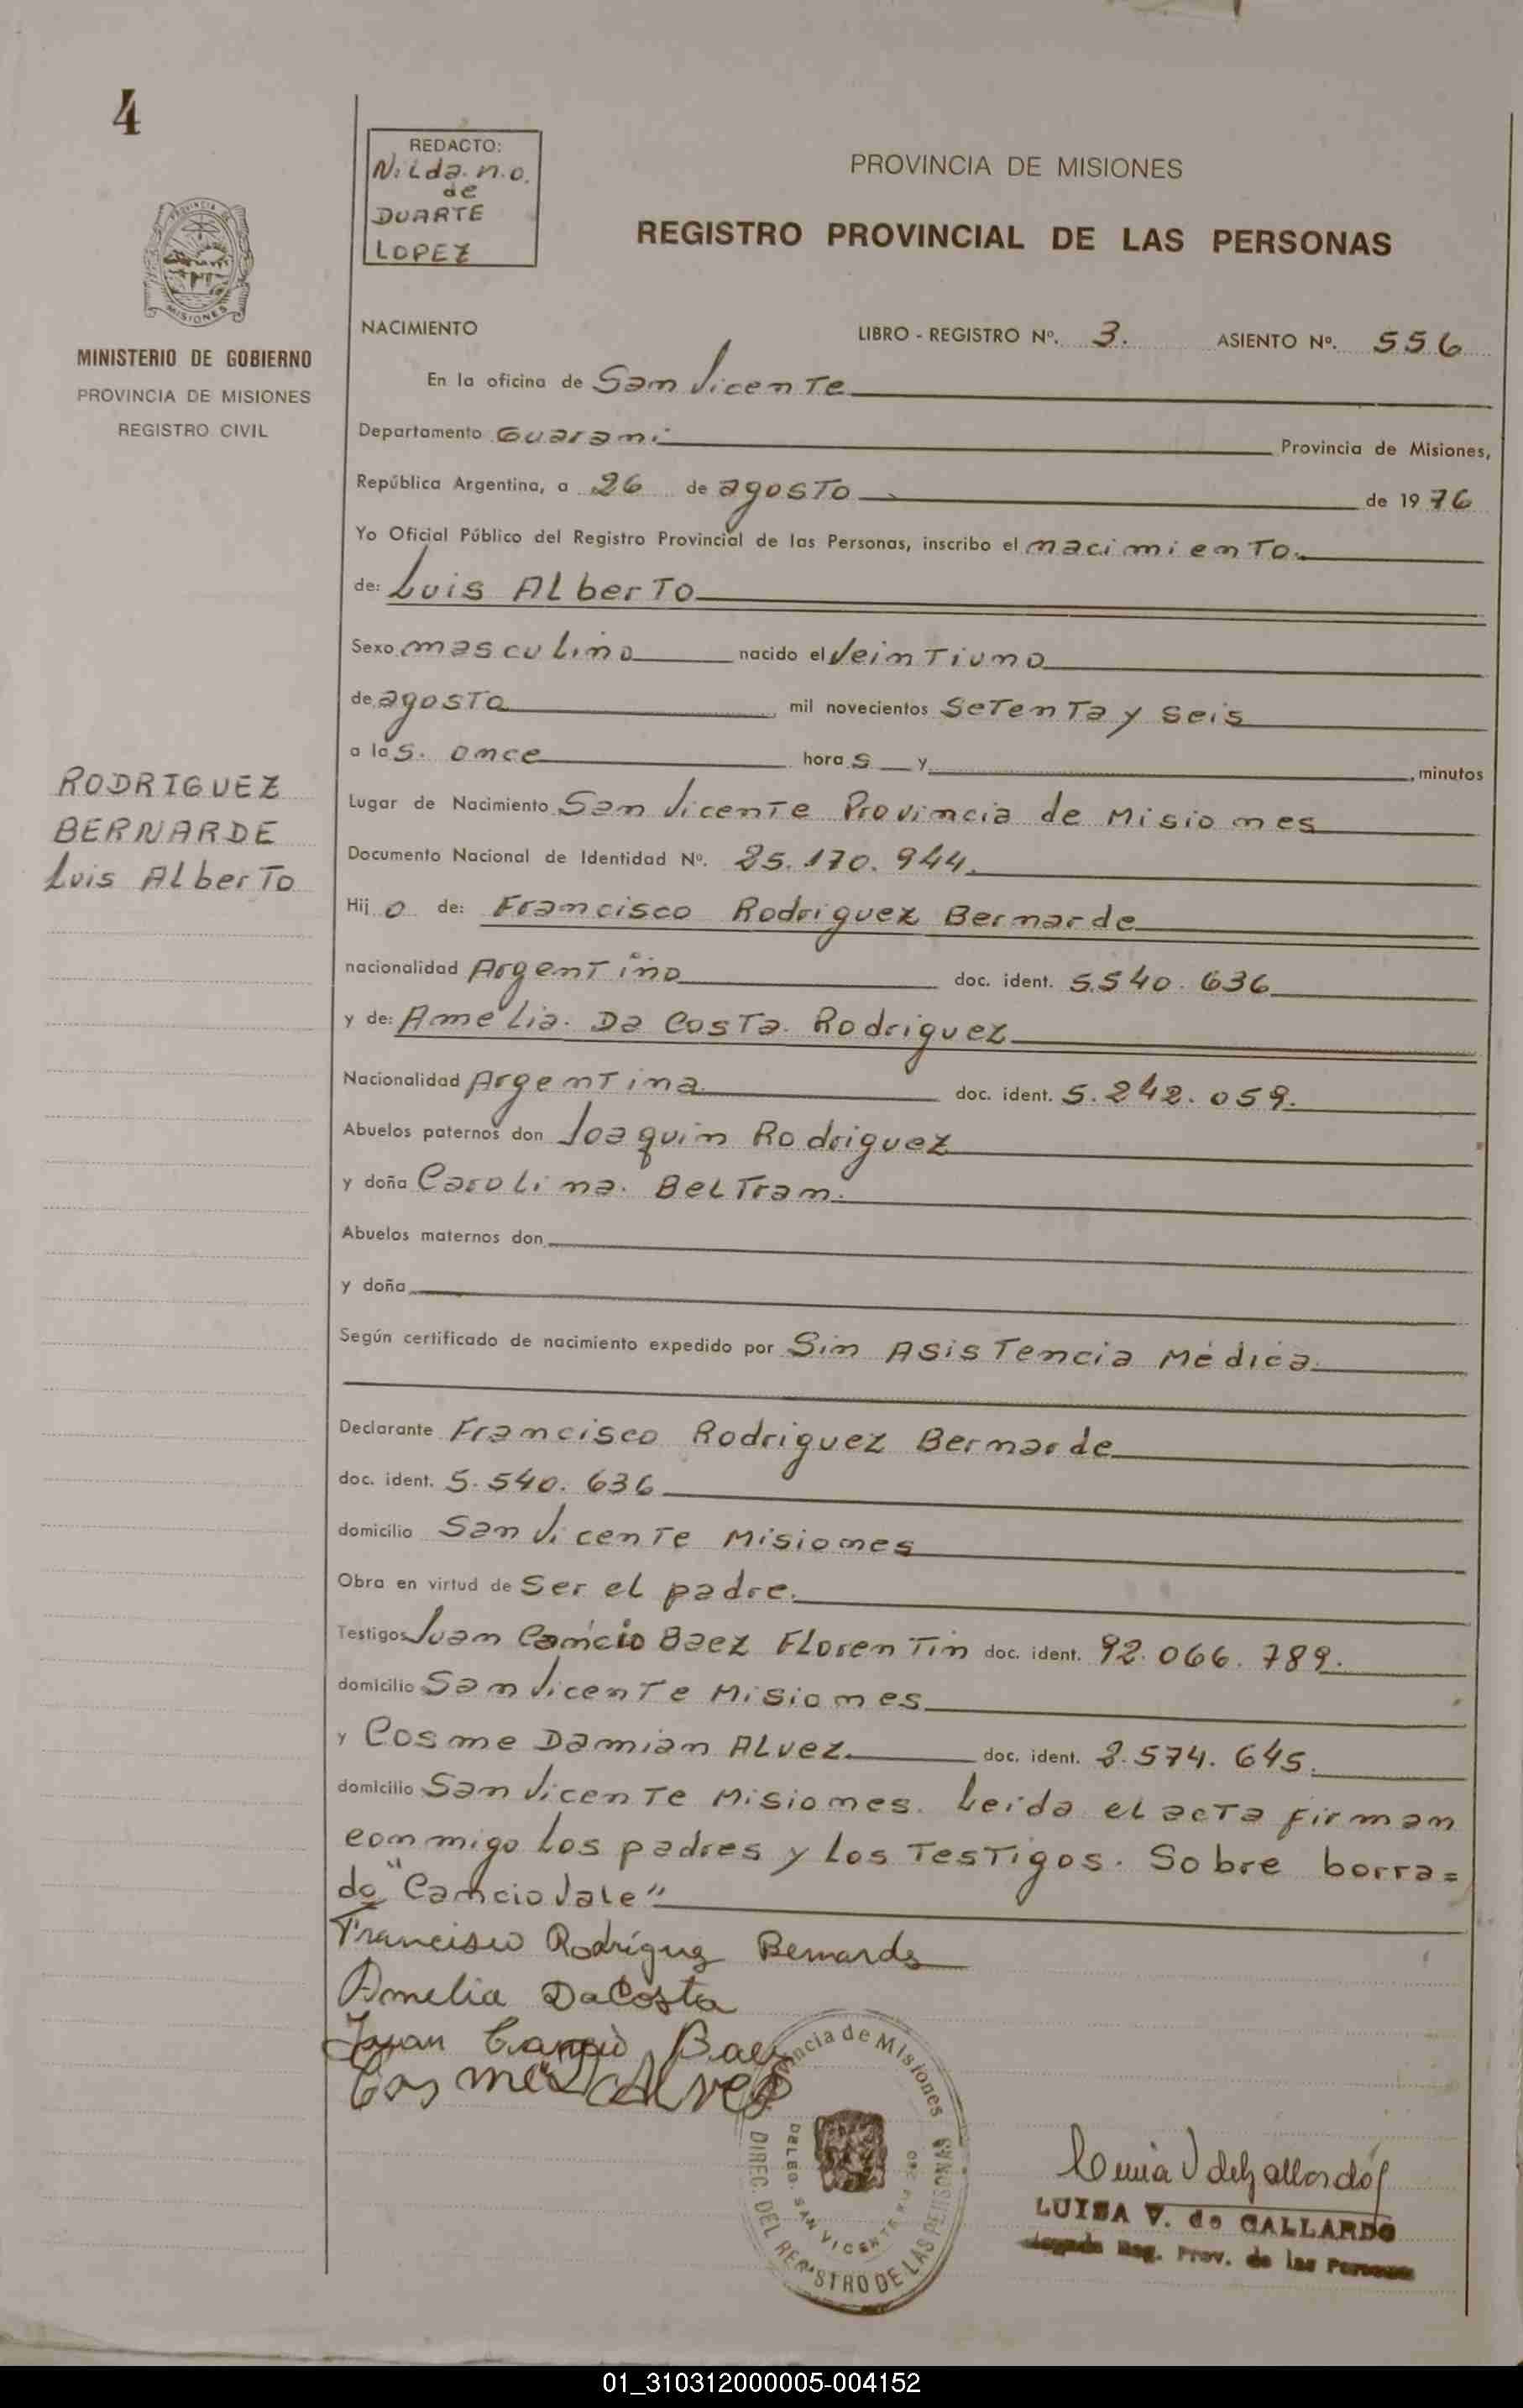 4
REDACTO:
Nilda. n.o.
de
DUARTE
LOPEZ
PROVINCIA DE MISIONES
REGISTRO PROVINCIAL DE LAS PERSONAS
PROVINCIA DE
MISIONES
MINISTERIO DE GOBIERNO
PROVINCIA DE MISIONES
REGISTRO CIVIL
NACIMIENTO LIBRO - REGISTRO Nº. 3. ASIENTO Nº. 556
En la oficina de San Vicente
Departamento Guarani Provincia de Misiones,
República Argentina, a 26 de agosto de 1976
Yo Oficial Público del Registro Provincial de las Personas, inscribo el nacimiento.
de: Luis Alberto
Sexo masculino nacido el Veintiuno
de agosto mil novecientos setenta y seis
a las. once horas y , minutos
RODRIGUEZ
BERNARDE
Luis Alberto
Lugar de Nacimiento San Vicente Provincia de Misiones
Documento Nacional de Identidad Nº. 25.170.944.
Hijo de: Francisco Rodriguez Bernarde
nacionalidad Argentino doc. ident. 5.540.636
y de: Amelia. Da Costa. Rodriguez
Nacionalidad Argentina doc. ident. 5.242.059.
Abuelos paternos don Joaquin Rodriguez
y doña Carolina. Beltram.
Abuelos maternos don
y doña
Según certificado de nacimiento expedido por Sin Asistencia Médica.
Declarante Francisco Rodriguez Bernarde
doc. ident. 5.540.636
domicilio San Vicente Misiones
Obra en virtud de Ser el padre.
Testigos Juan Cancio Baez Florentin doc. ident. 92.066.789.
domicilio San Vicente Misiones
y Cosme Damian Alvez. doc. ident. 2.574.645.
domicilio San Vicente Misiones. Leida el acta firman
conmigo los padres y los Testigos. Sobre borra=
do "Cancio Vale"
Francisco Rodríguez Bernarde
Amelia DaCosta
Juan Cancio Baez
Cosme Alvez
Provincia de Misiones
DELEG. SAN VICENTE
DIREC. DEL REGISTRO DE LAS PERSONAS
Luisa V de Gallardo
LUISA V. de GALLARDO
Reg. Prov. de las Personas
01_310312000005-004152